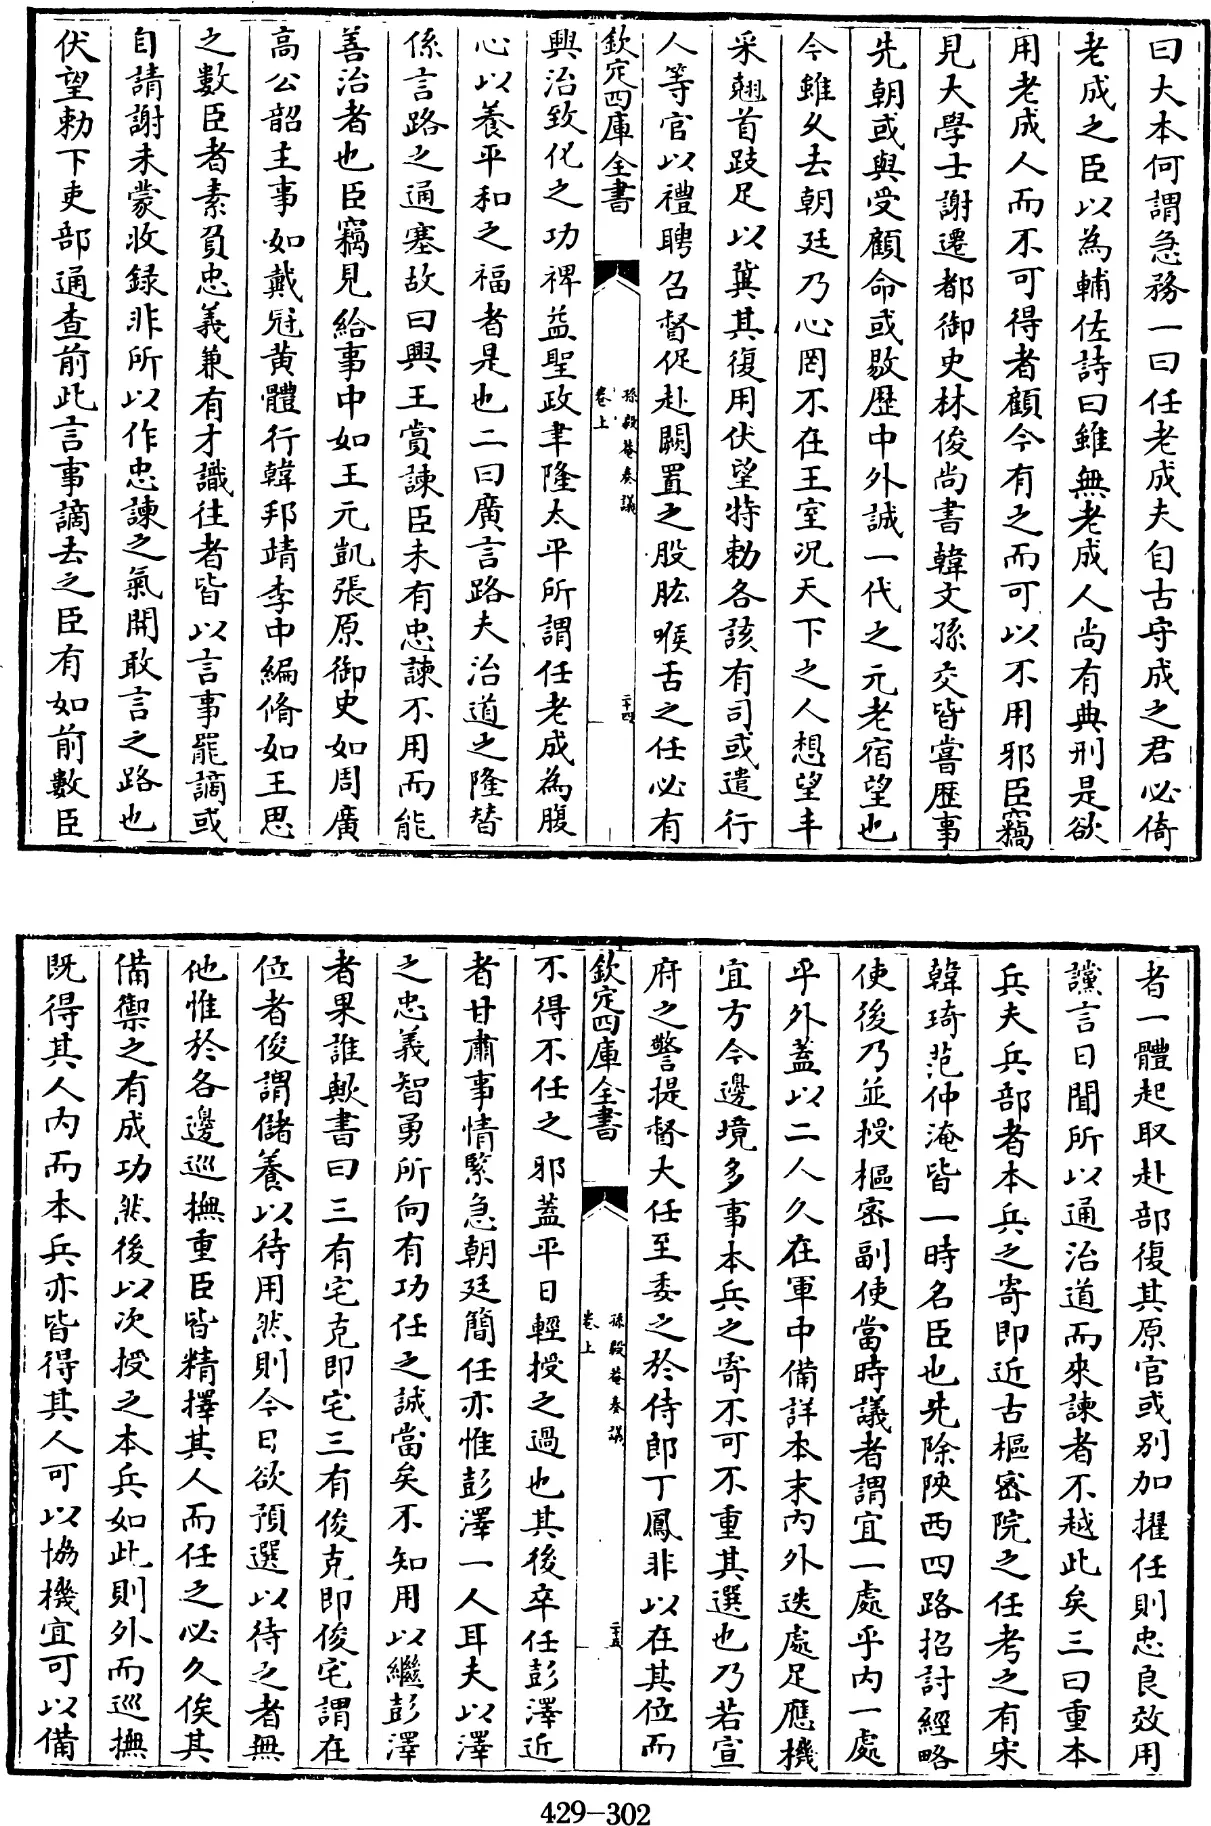 曰大本何謂急務一曰任老成夫自古守成之君必倚
老成之臣以為輔佐詩曰雖無老成人尚有典刑是欲
用老成人而不可得者顧今有之而可以不用邪臣竊
見大學士謝遷都御史林俊尚書韓文孫交皆嘗歴事
先朝或與受顧命或敭歴中外誠一代之元老宿望也
今雖乆去朝廷乃心罔不在王室況天下之人想望丰
采翹首跂足以冀其復用伏望特勅各該有司或遣行
人等官以禮聘召督促赴闕置之股肱喉舌之任必有
欽定四庫全書
孫毅菴奏議
卷上
二十四
興治致化之功禆益聖政聿隆太平所謂任老成為腹
心以養平和之福者是也二曰廣言路夫治道之隆替
係言路之通塞故曰興王賞諫臣未有忠諫不用而能
善治者也臣竊見給事中如王元凱張原御史如周廣
高公韶主事如戴冠黄體行韓邦靖李中編脩如王思
之數臣者素負忠義兼有才識往者皆以言事罷謫或
自請謝未蒙收録非所以作忠諫之氣開敢言之路也
伏望勅下吏部通查前此言事謫去之臣有如前數臣
者一體起取赴部復其原官或别加擢任則忠良效用
讜言日聞所以通治道而來諫者不越此矣三曰重本
兵夫兵部者本兵之寄即近古樞密院之任考之有宋
韓琦范仲淹皆一時名臣也先除陜西四路招討經略
使後乃並授樞密副使當時議者謂宜一處乎内一處
乎外葢以二人久在軍中備詳本末内外迭處足應機
宜方今邊境多事本兵之寄不可不重其選也乃若宣
府之警提督大任至委之於侍郎丁鳳非以在其位而
欽定四庫全書
孫毅菴奏議
卷上
二十五
不得不任之邪葢平日輕授之過也其後卒任彭澤近
者甘肅事情緊急朝廷簡任亦惟彭澤一人耳夫以澤
之忠義智勇所向有功任之誠當矣不知用以繼彭澤
者果誰歟書曰三有宅克即宅三有俊克即俊宅謂在
位者俊謂儲養以待用然則今日欲預選以待之者無
他惟於各邊巡撫重臣皆精擇其人而任之必久俟其
備禦之有成功然後以次授之本兵如此則外而巡撫
既得其人内而本兵亦皆得其人可以恊機宜可以備
429-302